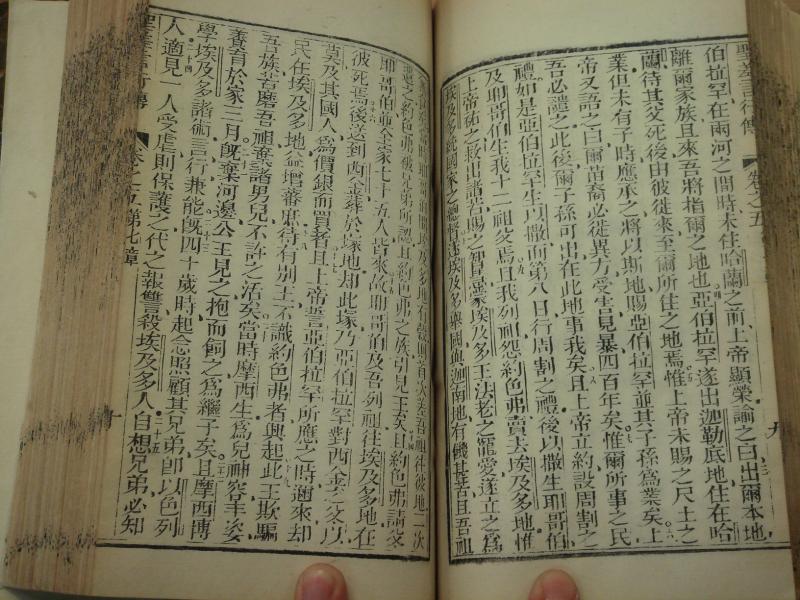 聖差言行傳 卷之五 九
伯拉罕在兩河之間時未住哈蘭之前上帝顯榮諭之曰出爾本地
離爾家族且來吾將指爾之地也亞伯拉罕遂出迦勒底地住在哈
蘭待其父死後由彼徙來至爾所住之地焉惟上帝未賜之尺土之
業但未有子時應承之將以斯地賜亞伯拉罕並其子孫爲業矣上
帝又語之曰爾苗裔必徙異方受苦見暴四百年矣惟爾所事之民
吾必譴之此後爾子孫可出在此地事我矣且上帝立約設周割之
禮如是亞伯拉罕生以撒而第八日行周割之禮後以撒生耶哥伯
及耶哥伯生我十二祖父焉且我列祖怨約色弗賣去埃及多地惟
上帝祐之救出諸苦賜之智蒙埃及多王法老之寵愛遂立之爲
埃及多統國家之總督遂埃及多舉國與迦南地有饑其苦且吾祖
埃及多地有穀則首次差吾祖往彼地二次
遣之約色弗被兄弟所認且約色弗之族引見王矣且約色弗請父
耶哥伯並全家七十五人皆來故耶哥伯及吾列祖往埃及多地在
彼死焉後送到西金葬於塚地却此塚乃亞伯拉罕對西金之父以
莫及其國人爲價銀而買者且上帝誓亞伯拉罕所應之時邇來却
民住埃及多地益增蕃庶待有別王不識約色弗者興起此王欺騙
吾族苦磨吾祖棄諸男兒不許之活矣當時摩西生爲兒神容丰姿
養育於家三月旣棄河邊公主見之抱而飼之爲繼子矣且摩西博
學埃及多諸術言行兼能旣四十歲時起念照顧其兄弟卽以色列
人適見一人受虐則保護之代之報讐殺埃及多人自想兄弟必知
聖差言行傳 卷之五第七章 十